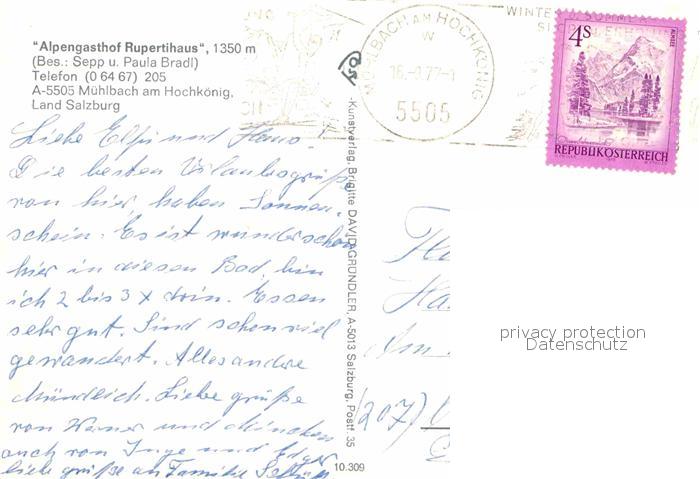 "Alpengasthof Rupertihaus", 1350 m
(Bes.: Sepp u. Paula Bradl)
Telefon (0 64 67) 205
A-5505 Mühlbach am Hochkönig,
Land Salzburg
Liebe Elfi und Hans.
Die besten Urlaubsgrüße
von hier haben Sonnen-
schein. Es ist wunderschön
hier in diesen Bad, bin
ich 2 bis 3 x drin. Essen
sehr gut. Sind schon viel
gewandert. Alles andre
Mündlich. Liebe Grüße
von und
auch von Inge und
liebe Grüße an Familie
-Kunstverlag, Brigitte DAVID-GRÜNDLER, A-5013 Salzburg, Postf. 35
10.309
MÜHLBACH AM HOCHKÖNIG
5505
4S
ALMSEE
REPUBLIK ÖSTERREICH
(207)
privacy protection
Datenschutz